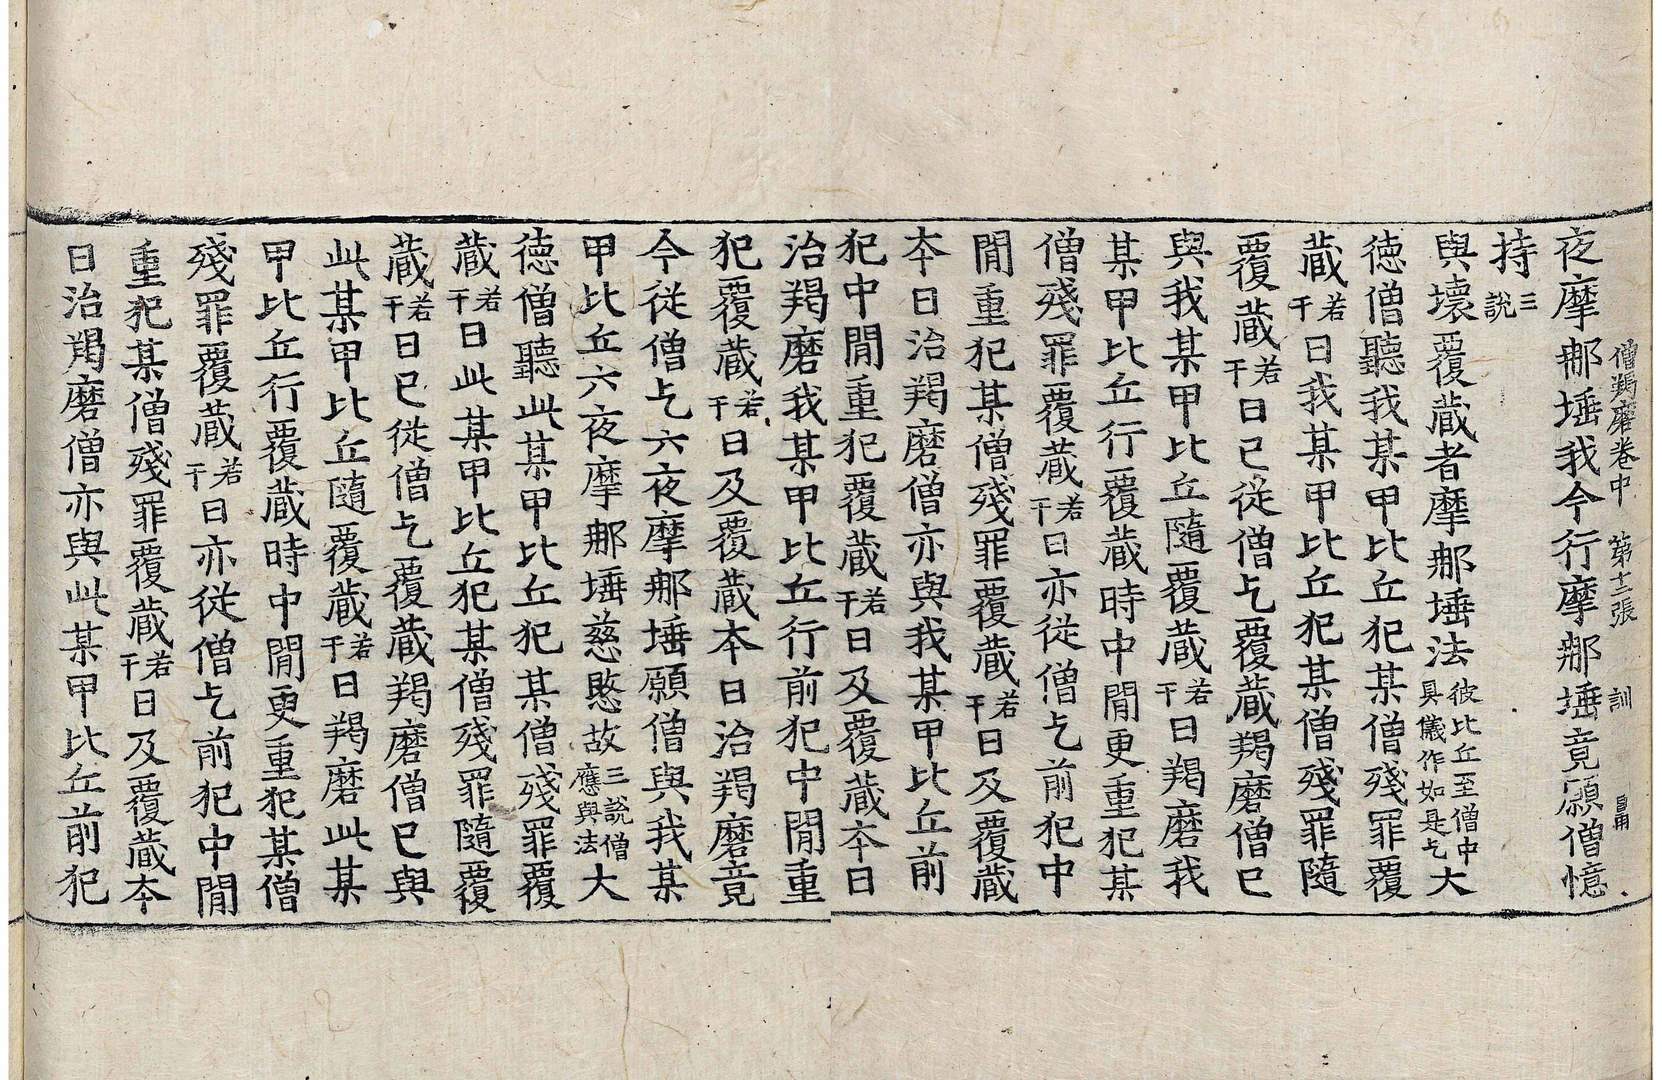 僧羯磨卷中 第十三張 訓
夜摩那埵我今行摩那埵竟願僧憶
持三說
與壞覆藏者摩那埵法彼比丘至僧中具儀作如是乞大
德僧聽我某甲比丘犯某僧殘罪覆
藏若干日我某甲比丘犯某僧殘罪隨
覆藏若干日已從僧乞覆藏羯磨僧已
與我某甲比丘隨覆藏若干日羯磨我
某甲比丘行覆藏時中閒更重犯某
僧殘罪覆藏若干日亦從僧乞前犯中
閒重犯某僧殘罪覆藏若干日及覆藏
本日治羯磨僧亦與我某甲比丘前
犯中閒重犯覆藏若干日及覆藏本日
治羯磨我某甲比丘行前犯中閒重
犯覆藏若干日及覆藏本日治羯磨竟
今從僧乞六夜摩那埵願僧與我某
甲比丘六夜摩那埵慈愍故三說僧應與法大
德僧聽此某甲比丘犯某僧殘罪覆
藏若干日此某甲比丘犯某僧殘罪隨覆
藏若干日已從僧乞覆藏羯磨僧已與
此某甲比丘隨覆藏若干日羯磨此某
甲比丘行覆藏時中閒更重犯某僧
殘罪覆藏若干日亦從僧乞前犯中閒
重犯某僧殘罪覆藏若干日及覆藏本
日治羯磨僧亦與此某甲比丘前犯